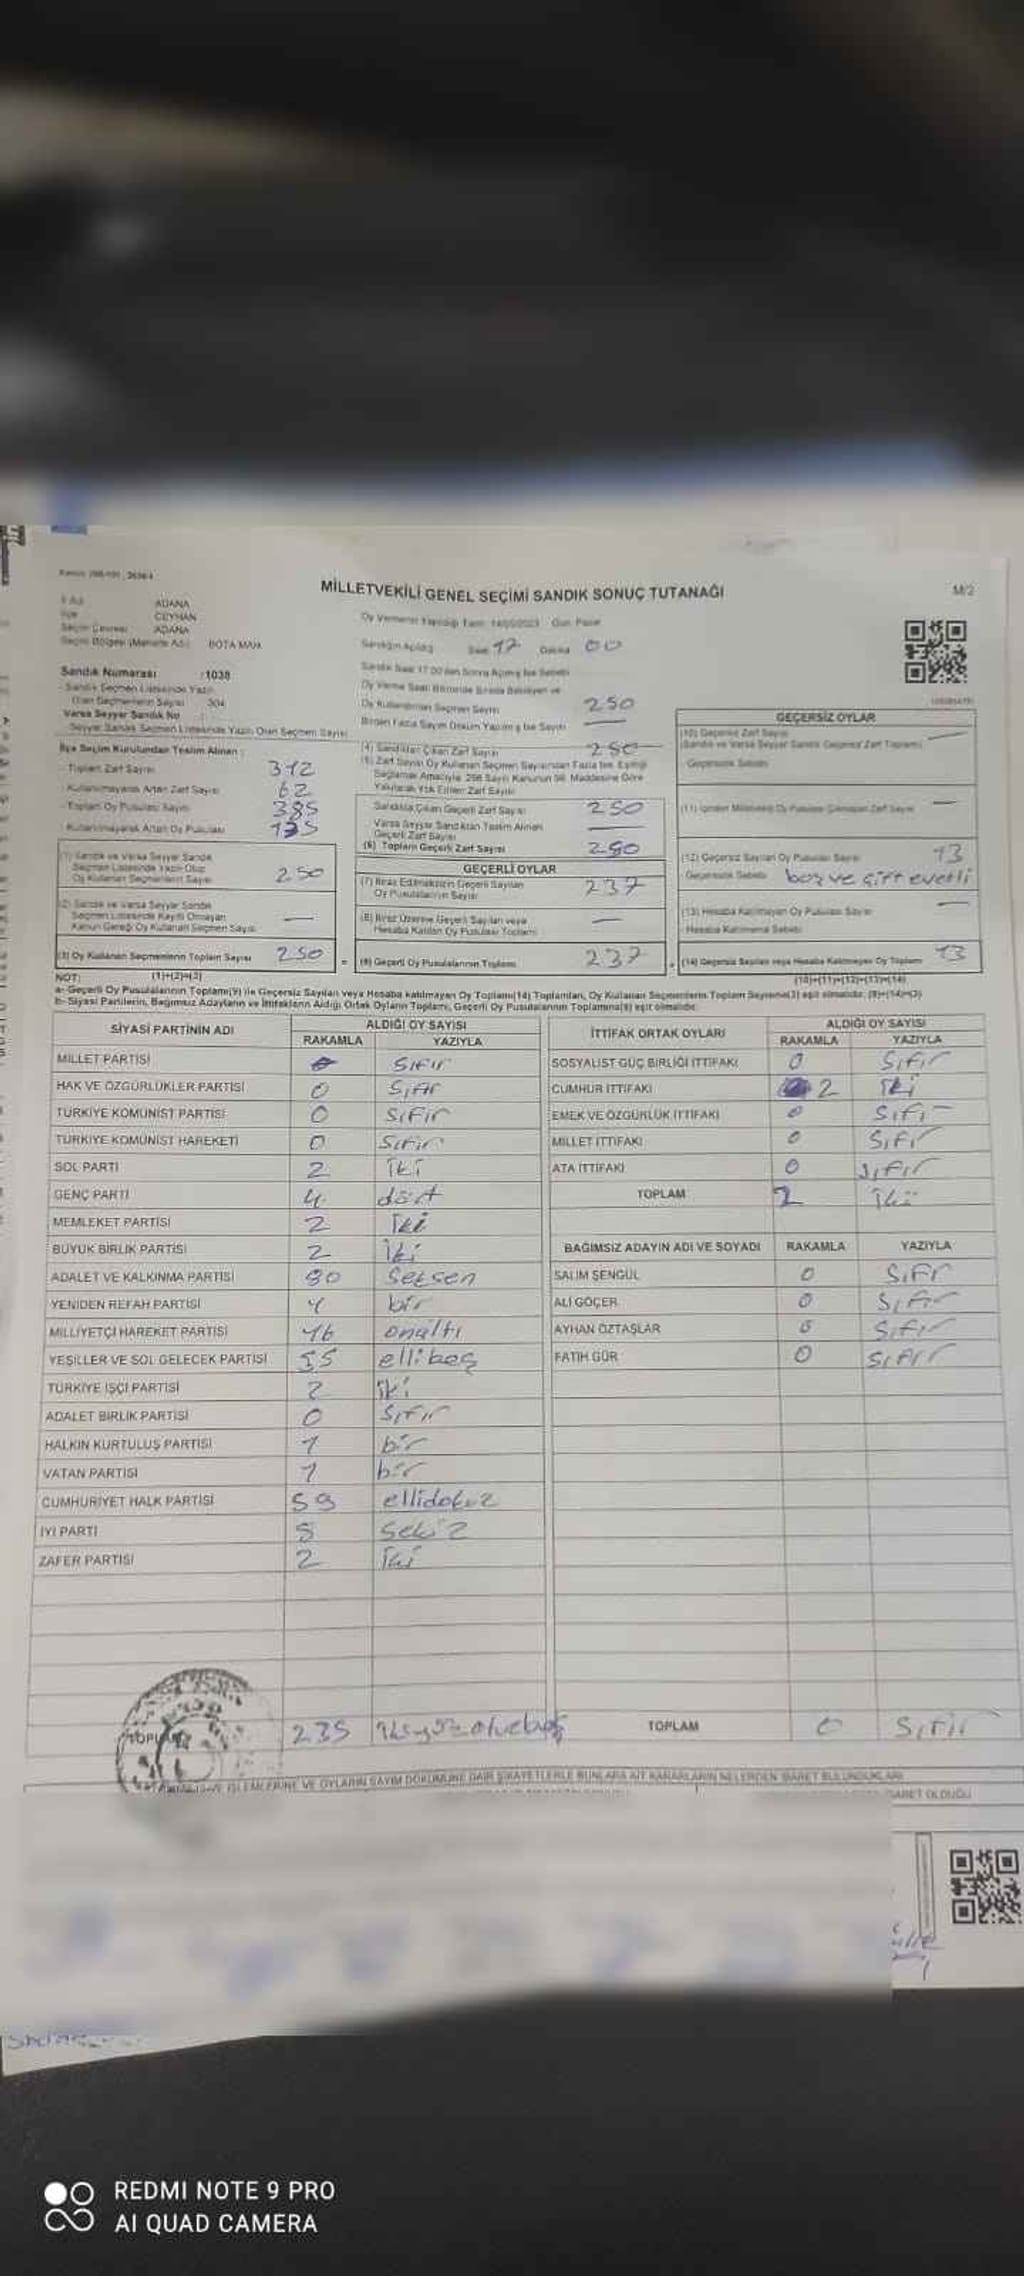 MİLLETVEKİLİ GENEL SEÇİMİ SANDIK SONUÇ TUTANAĞI
M/2
İl Adı ADANA
İlçe CEYHAN
Seçim Çevresi ADANA
Seçim Bölgesi (Mahalle Adı) BOTA MAH.
Sandık Numarası :1038
Sandık Seçmen Listesinde Yazılı
Olan Seçmenlerin Sayısı 304
Varsa Seyyar Sandık No
Seyyar Sandık Seçmen Listesinde Yazılı Olan Seçmen Sayısı
Oy Vermenin Yapıldığı Tarih 14/05/2023 Gün Pazar
Sandığın Açıldığı Saat 17 Dakika 00
Sandık Saat 17.00'den Sonra Açılmış İse Sebebi
Oy Verme Saati Bitiminde Sırada Bekleyen ve
Oy Kullandırılan Seçmen Sayısı 250
Birden Fazla Sayım Döküm Yapılmış İse Sayısı —
İlçe Seçim Kurulundan Teslim Alınan :
- Toplam Zarf Sayısı 312
- Kullanılmayarak Artan Zarf Sayısı 62
- Toplam Oy Pusulası Sayısı 385
- Kullanılmayarak Artan Oy Pusulası 135
(1) Sandık ve Varsa Seyyar Sandık
Seçmen Listesinde Yazılı Olup
Oy Kullanan Seçmenlerin Sayısı 250
(2) Sandık ve Varsa Seyyar Sandık
Seçmen Listesinde Kayıtlı Olmayan
Kanun Gereği Oy Kullanan Seçmen Sayısı —
(3) Oy Kullanan Seçmenlerin Toplam Sayısı 250
(1)+(2)=(3)
(4) Sandıktan Çıkan Zarf Sayısı 250
(5) Zarf Sayısı Oy Kullanan Seçmen Sayısından Fazla İse, Eşitliği
Sağlamak Amacıyla 298 Sayılı Kanunun 98. Maddesine Göre
Yakılarak Yok Edilen Zarf Sayısı
Sandıkta Çıkan Geçerli Zarf Sayısı 250
Varsa Seyyar Sandıktan Teslim Alınan
Geçerli Zarf Sayısı —
(6) Toplam Geçerli Zarf Sayısı 250
GEÇERLİ OYLAR
(7) İtiraz Edilmeksizin Geçerli Sayılan
Oy Pusulalarının Sayısı 237
(8) İtiraz Üzerine Geçerli Sayılan veya
Hesaba Katılan Oy Pusulası Toplamı —
(9) Geçerli Oy Pusulalarının Toplamı 237
GEÇERSİZ OYLAR
(10) Geçersiz Zarf Sayısı —
(Sandık ve Varsa Seyyar Sandık Geçersiz Zarf Toplamı)
Geçersizlik Sebebi
(11) İçinden Milletvekili Oy Pusulası Çıkmayan Zarf Sayısı —
(12) Geçersiz Sayılan Oy Pusulası Sayısı 13
Geçersizlik Sebebi boş ve çift evetli
(13) Hesaba Katılmayan Oy Pusulası Sayısı —
Hesaba Katılmama Sebebi
(14) Geçersiz Sayılan veya Hesaba Katılmayan Oy Toplamı 13
(10)+(11)+(12)+(13)=(14)
NOT:
a- Geçerli Oy Pusulalarının Toplamı(9) ile Geçersiz Sayılan veya Hesaba katılmayan Oy Toplamı(14) Toplamları, Oy Kullanan Seçmenlerin Toplam Sayısına(3) eşit olmalıdır. (9)+(14)=(3)
b- Siyasi Partilerin, Bağımsız Adayların ve İttifakların Aldığı Ortak Oyların Toplamı, Geçerli Oy Pusulalarının Toplamına(9) eşit olmalıdır.
SİYASİ PARTİNİN ADI ALDIĞI OY SAYISI
RAKAMLA YAZIYLA
MİLLET PARTİSİ 0 Sıfır
HAK VE ÖZGÜRLÜKLER PARTİSİ 0 Sıfır
TÜRKİYE KOMÜNİST PARTİSİ 0 Sıfır
TÜRKİYE KOMÜNİST HAREKETİ 0 Sıfır
SOL PARTİ 2 İki
GENÇ PARTİ 4 dört
MEMLEKET PARTİSİ 2 İki
BÜYÜK BİRLİK PARTİSİ 2 İki
ADALET VE KALKINMA PARTİSİ 80 Seksen
YENİDEN REFAH PARTİSİ 1 bir
MİLLİYETÇİ HAREKET PARTİSİ 16 onaltı
YEŞİLLER VE SOL GELECEK PARTİSİ 55 ellibeş
TÜRKİYE İŞÇİ PARTİSİ 2 iki
ADALET BİRLİK PARTİSİ 0 Sıfır
HALKIN KURTULUŞ PARTİSİ 1 bir
VATAN PARTİSİ 1 bir
CUMHURİYET HALK PARTİSİ 59 ellidokuz
İYİ PARTİ 8 Sekiz
ZAFER PARTİSİ 2 İki
TOPLAM 235 İkiyüzotuzbeş
İTTİFAK ORTAK OYLARI ALDIĞI OY SAYISI
RAKAMLA YAZIYLA
SOSYALİST GÜÇ BİRLİĞİ İTTİFAKI 0 Sıfır
CUMHUR İTTİFAKI 2 İki
EMEK VE ÖZGÜRLÜK İTTİFAKI 0 Sıfır
MİLLET İTTİFAKI 0 Sıfır
ATA İTTİFAKI 0 Sıfır
TOPLAM 2 İki
BAĞIMSIZ ADAYIN ADI VE SOYADI RAKAMLA YAZIYLA
SALİM ŞENGÜL 0 Sıfır
ALİ GÖÇER 0 Sıfır
AYHAN ÖZTAŞLAR 0 Sıfır
FATİH GÜR 0 Sıfır
TOPLAM 0 Sıfır
İŞLEMLERİNE VE OYLARIN SAYIM DÖKÜMÜNE DAİR ŞİKAYETLERLE BUNLARA AİT KARARLARIN NELERDEN İBARET BULUNDUKLARI
REDMI NOTE 9 PRO
AI QUAD CAMERA